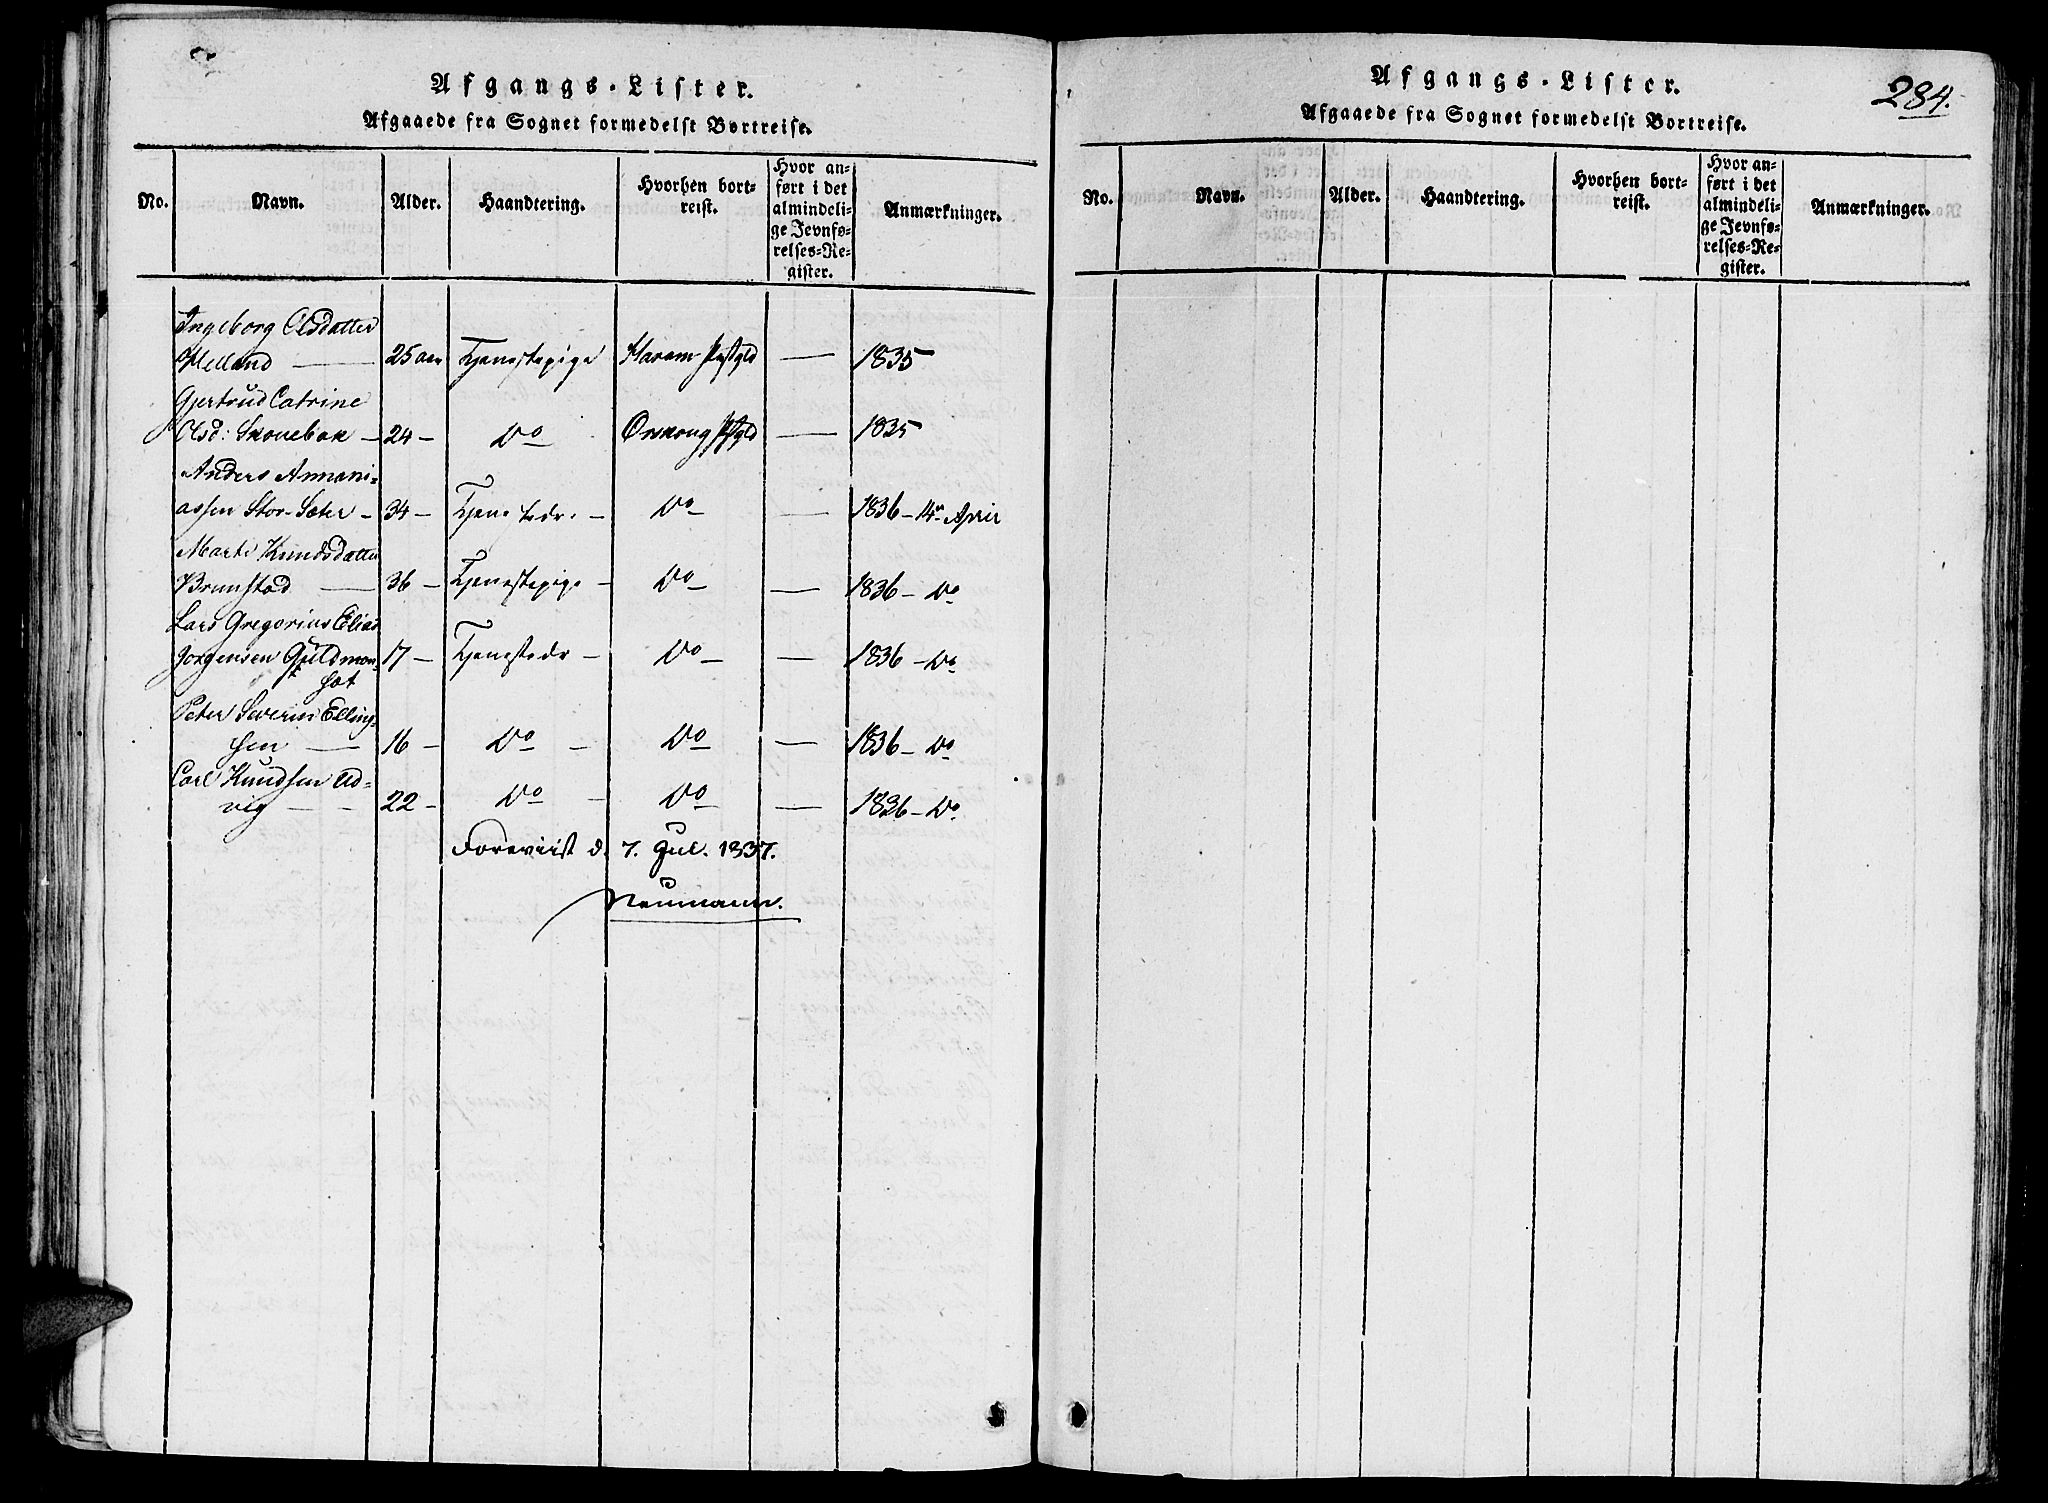 Afgangs-Lister.
Afgaaede fra Sognet formedelst Bortreise.
No. Navn. Alder. Haandtering. Hvorhen bort-
reist. Hvor an-
ført i det
almindeli-
ge Jevnfø-
relses-Re-
gister. Anmærkninger.
Ingeborg Olsdatter
Helland — 25 aar Tjenestepige Haram Præstgld — 1835
Gjertrud Catrine
Olsd: Skouebak — 24 — Do Ørskoug Pstgld — 1835
Anders Annani-
assen Stor-Sæter — 34 — Tjenestedr. — Do — 1836 — 14de April
Marte Knudsdatter
Brunstad — 36 — Tjenestepige — Do — 1836 — Do
Lars Gregorius Elias
Jørgensen Guldmon- 17 — Tjenestedr — Do — 1836 — Do
sæt
Peter Severin Elling-
sen — 16 — Do — Do — 1836 — Do
Carl Knudsen Ud-
vig — 22 — Do — Do — 1836 — Do
Foreviist d. 7. Jul. 1837.
Neumann.
Afgangs-Lister.
284.
Afgaaede fra Sognet formedelst Bortreise.
No. Navn. Alder. Haandtering. Hvorhen bort-
reist. Hvor an-
ført i det
almindeli-
ge Jevnfø-
relses-Re-
gister. Anmærkninger.